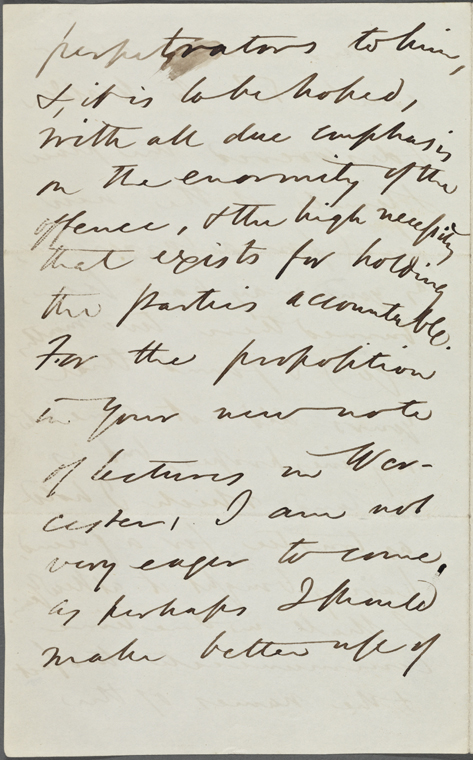 perpetrators to him,
& it is to be hoped,
with all due emphasis
on the enormity of the
offence, & the high necessity
that exists for holding
the parties accountable.
For the proposition
in your new note
of lectures in Wor-
cester, I am not
very eager to come,
as perhaps I should
make better use of